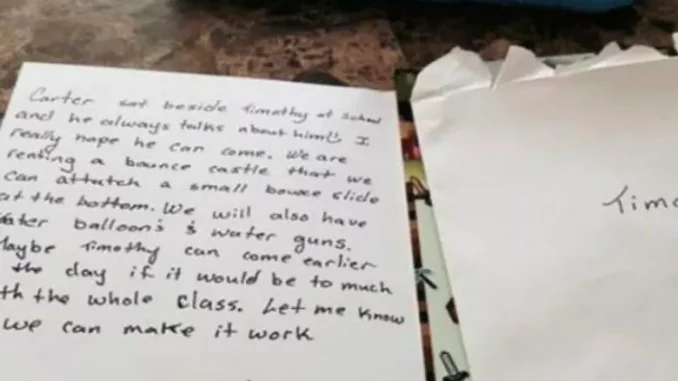 Carter sat beside Timothy at school
and he always talks about him! I
really hope he can come. We are
renting a bounce castle that we
can attatch a small bounce slide
at the bottom. We will also have
water balloons & water guns.
Maybe Timothy can come earlier
the day if it would be to much
th the whole class. Let me know
we can make it work
Timo